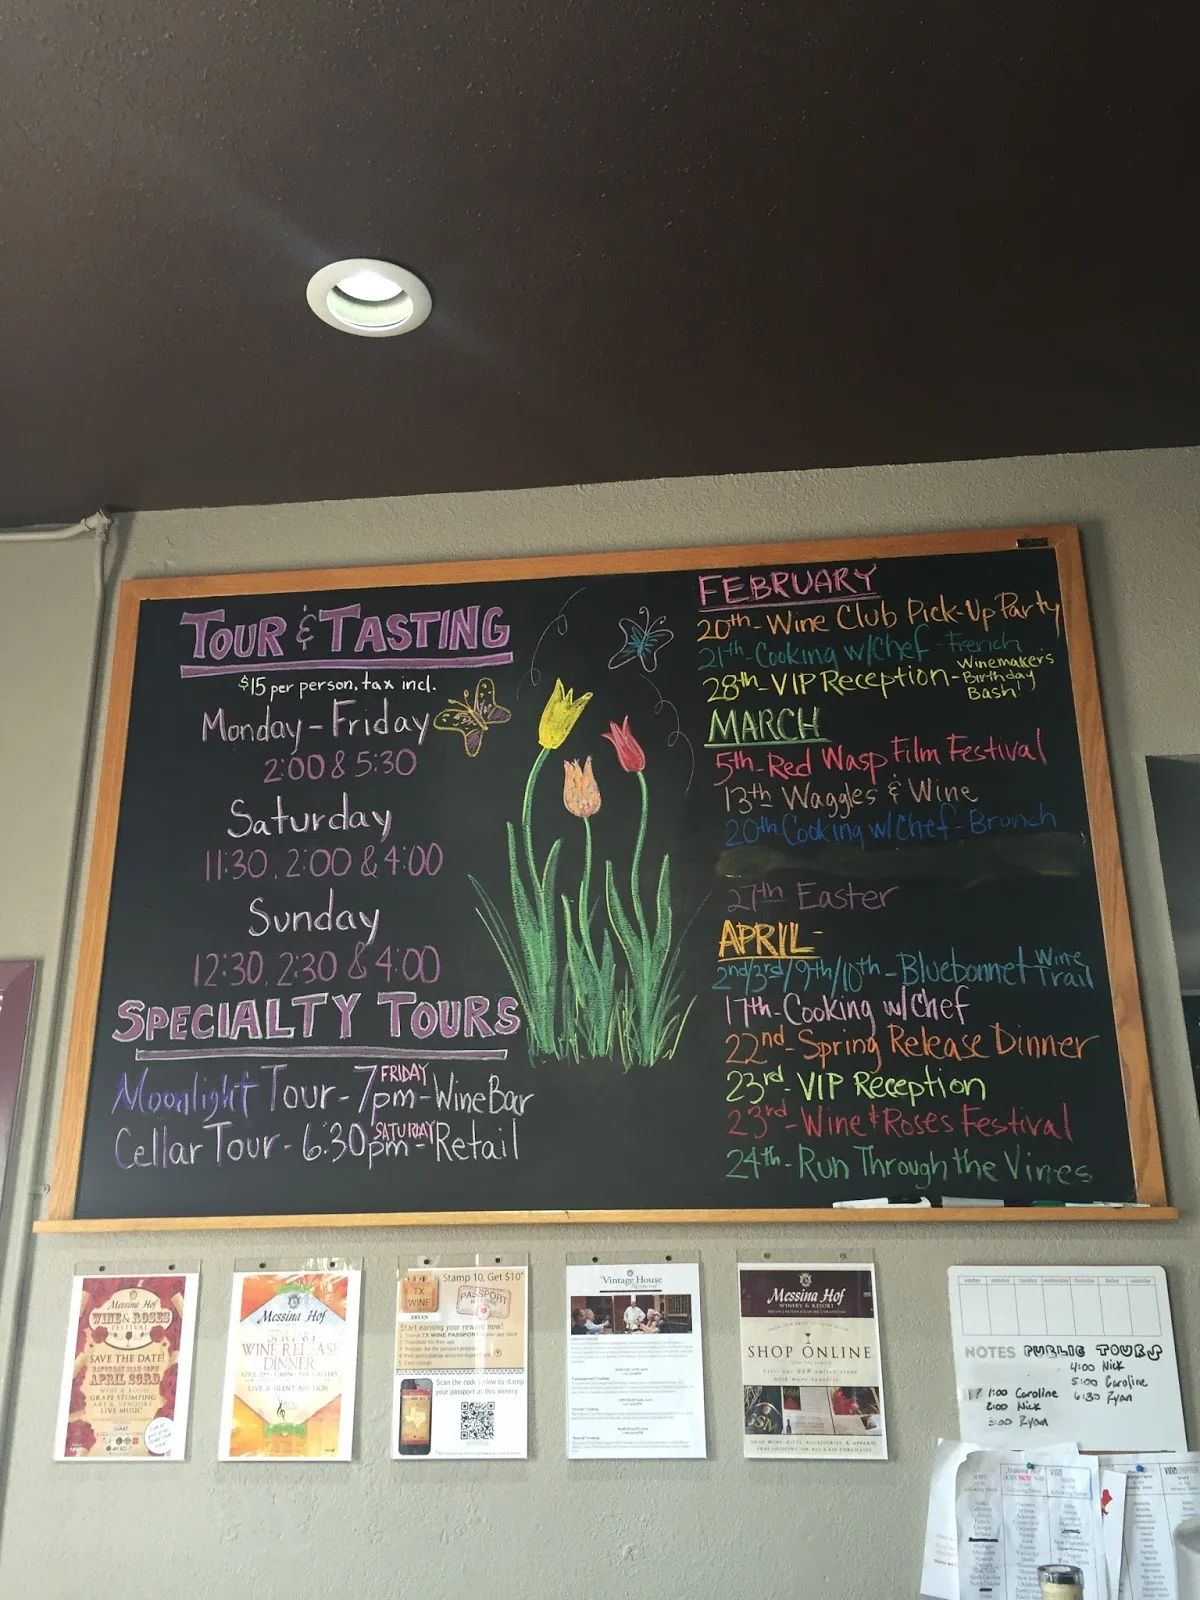 TOUR & TASTING
$15 per person, tax incl.
Monday - Friday
2:00 & 5:30
Saturday
11:30, 2:00 & 4:00
Sunday
12:30, 2:30 & 4:00
SPECIALTY TOURS
Moonlight Tour - FRIDAY 7pm - Wine Bar
Cellar Tour - 6:30pm SATURDAY - Retail
FEBRUARY
20th - Wine Club Pick-Up Party
21th - Cooking w/Chef - French
28th - VIP Reception - Winemaker's
Birthday
Bash!
MARCH
5th - Red Wasp Film Festival
13th Waggles & Wine
20th Cooking w/Chef - Brunch
27th Easter
APRIL -
2nd/3rd/9th/10th - Bluebonnet Wine
Trail
17th - Cooking w/Chef
22nd - Spring Release Dinner
23rd - VIP Reception
23rd - Wine & Roses Festival
24th - Run Through the Vines
Messina Hof
WINE & ROSES
FESTIVAL
SAVE THE DATE!
APRIL 23RD
WINE & FOOD
GRAPE STOMPING
ART & VENDORS
LIVE MUSIC
Messina Hof
SPRING
WINE RELEASE
DINNER
LIVE & SILENT AUCTION
Stamp 10, Get $10
TX
WINE
PASSPORT
BRYAN
Start earning your reward now!
Scan the code below to stamp
your passport at this winery
Vintage House
Messina Hof
WINERY & RESORT
SHOP ONLINE
SHOP WINE, GIFTS, ACCESSORIES & APPAREL
sunday monday tuesday wednesday thursday friday saturday
NOTES PUBLIC TOURS
4:00 Nick
5:00 Caroline
1:00 Caroline 6:30 Ryan
2:00 Nick
3:00 Ryan
Messina Hof